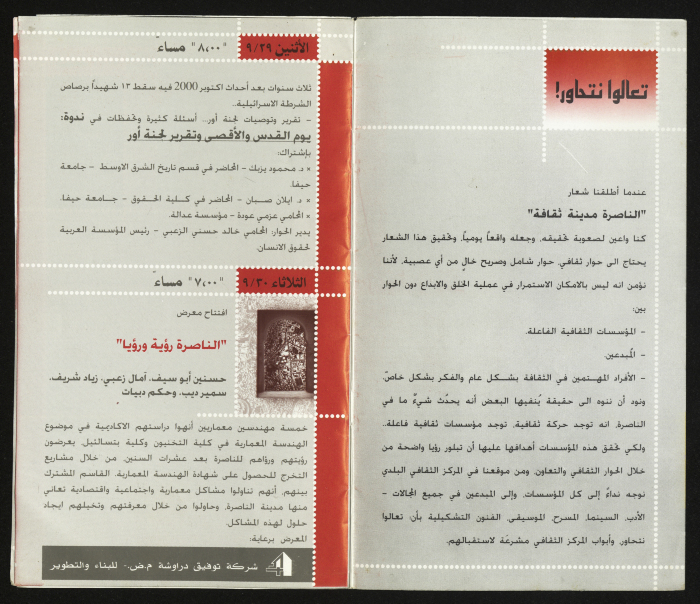 تعالوا نتحاور!
عندما أطلقنا شعار
"الناصرة مدينة ثقافة"
كنا واعين لصعوبة تحقيقه، وجعله واقعاً يومياً، وتحقيق هذا الشعار
يحتاج الى حوار ثقافي، حوار شامل وصريح خالٍ من أي عصبية، لأننا
نؤمن انه ليس بالامكان الاستمرار في عملية الخلق والابداع دون الحوار
بين:
- المؤسسات الثقافية الفاعلة.
- المُبدعين.
- الأفراد المهـتمين في الثقافة بشـكل عام والفكر بشكل خاصّ.
ونود أن ننوه الى حقيقة يُنفيها البعض أنه يحدُث شيءٌ ما في
الناصرة، انه توجد حركة ثقافية، توجد مؤسسات ثقافية فاعلة..
ولكي تحقق هذه المؤسسات أهدافها عليها أن تبلور رؤيا واضحة من
خلال الحوار الثقافي والتعاون، ومن موقعنا في المركز الثقافي البلدي
نوجه نداءً إلى كل المؤسسات، وإلى المبدعين في جميع المجالات -
الأدب، السينما، المسرح، الموسيقى، الفنون التشكيلية بأن، تعالوا
نتحاور، وأبواب المركز الثقافي مشرعَة لاستقبالهم.
الأثنين ٩/٢٩ "٨،٠٠" مساءً
ثلاث سنوات بعد أحداث اكتوبر 2000 فيه سقط ١٣ شهيداً برصاص
الشرطة الاسرائيلية..
- تقرير وتوصيات لجنة أور... أسئلة كثيرة وتحفظات في ندوة:
يوم القدس والأقصى وتقرير لجنة أور
بإشتراك:
× د. محمود يزبك - المحاضر في قسم تاريخ الشرق الاوسط - جامعة
حيفا.
× د. ايلان صـبان - المحاضر في كلـية الحـقوق - جـامعة حيفا.
× المحامي عزمي عودة - مؤسسة عدالة.
يدير الحوار: المحامي خالد حسني الزعبي - رئيس المؤسسة العربية
لحقوق الانسان.
الثلاثاء ٩/٣٠ "٧،٠٠" مساءً
افتتاح معرض
"الناصرة رؤية ورؤيا"
حسنين أبو سيف، آمال زعبي، زياد شريف،
سمير ديب، وحكم دبيات
خمسة مهندسين معماريين أنهوا دراستهم الاكاديمية في موضوع
الهندسة المعمارية في كلية التخنيون وكلية بتسالئيل، يعرضون
رؤيتهم ورؤاهم للناصرة بعد عشرات السنين، من خلال مشاريع
التخرج للحصول على شهادة الهندسة المعمارية. القاسم المشترك
بينهم، أنهم تناولوا مشاكل معمارية واجتماعية واقتصادية تعاني
منها مدينة الناصرة، وحاولوا من خلال معرفتهم وتخيلهم ايجاد
حلول لهذه المشاكل.
المعرض برعاية:
شركة توفيق دراوشة م.ض.- للبناء والتطوير